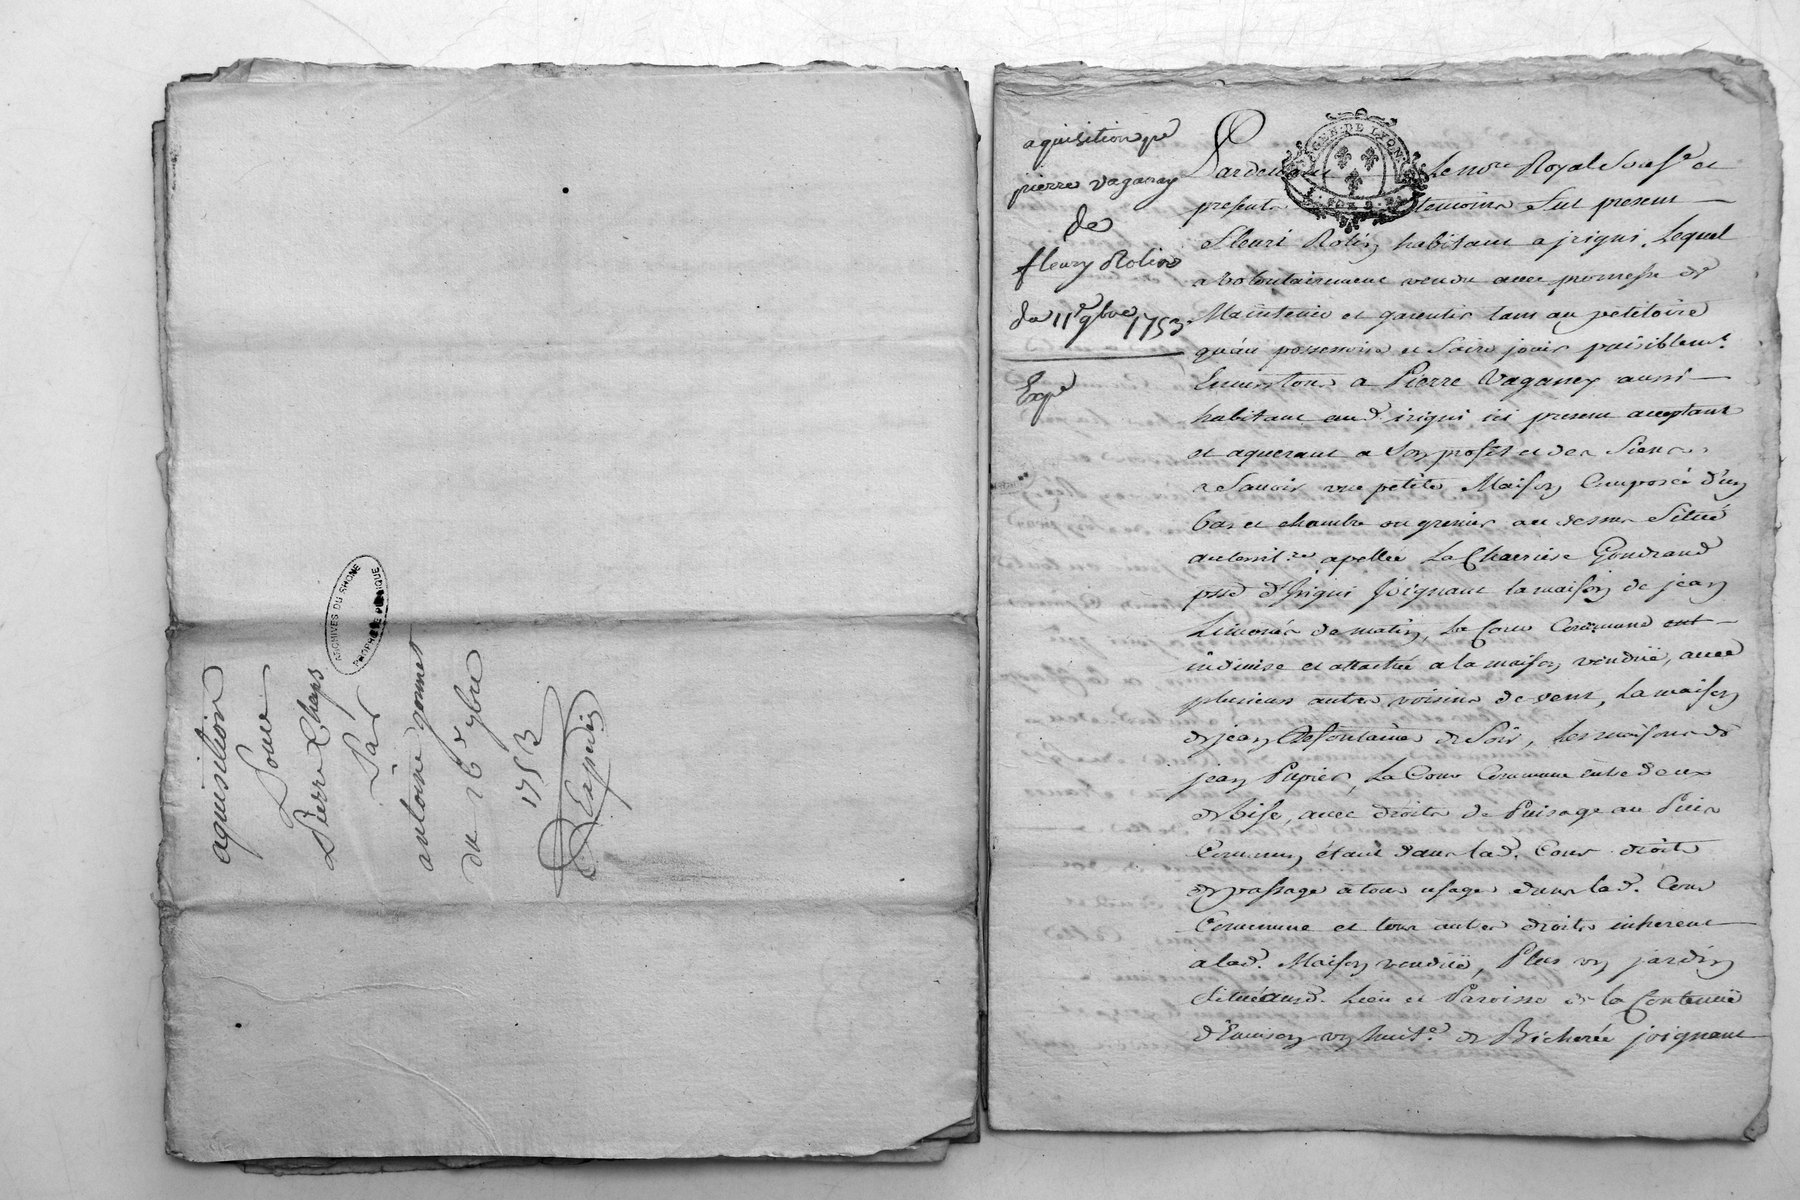 aquisition
Pour
Pierre Chaps
Par
antoine gonnet
du 26e 9bre
1753
Expediée
ARCHIVES DU RHONE
PROPRIÉTÉ PUBLIQUE
aquisition pr
pierre vaganay
de
fleury Rolin
du 11e 9bre 1753
Expé
GEN. DE LYON
Pardevant le nore Royal sousse et
presents temoins fut present
fleuri Rolin habitant a jrigni, Lequel
a volontairement vendu avec promesse de
Maintenir et garentir tant au petitoire
qu'au possessoire et faire jouir paisiblemt.
Envers tous a Pierre Vaganey aussi
habitant aud. irigni ici present acceptant
et aquerant a son profit et des siens
a Savoir une petite Maison Composée d'un
bas et chambre ou grenier au dessus Situé
au territre. apellée La Charriere Gondrand
psse d'Irigni Joignant la maison de jean
Limonés de matin, La Cour Commune
indivise et attachée a la maison venduë, avec
plusieurs autres voisins de vent, La maison
de jean Defontaine de Soir, Les maisons de
jean Papier, La Cour Commune entre deux
de bise, avec droits de Puisage au Puis
Commun étant dans lad. Cour droits
de passage à tous usages dans lad. Cour
Commune et tous autres droits inherent
a lad. Maison venduë, Plus un jardin
situé aud. Lieu et Paroisse de la Contenuë
d'Environ un huite. de Bicherée joignant